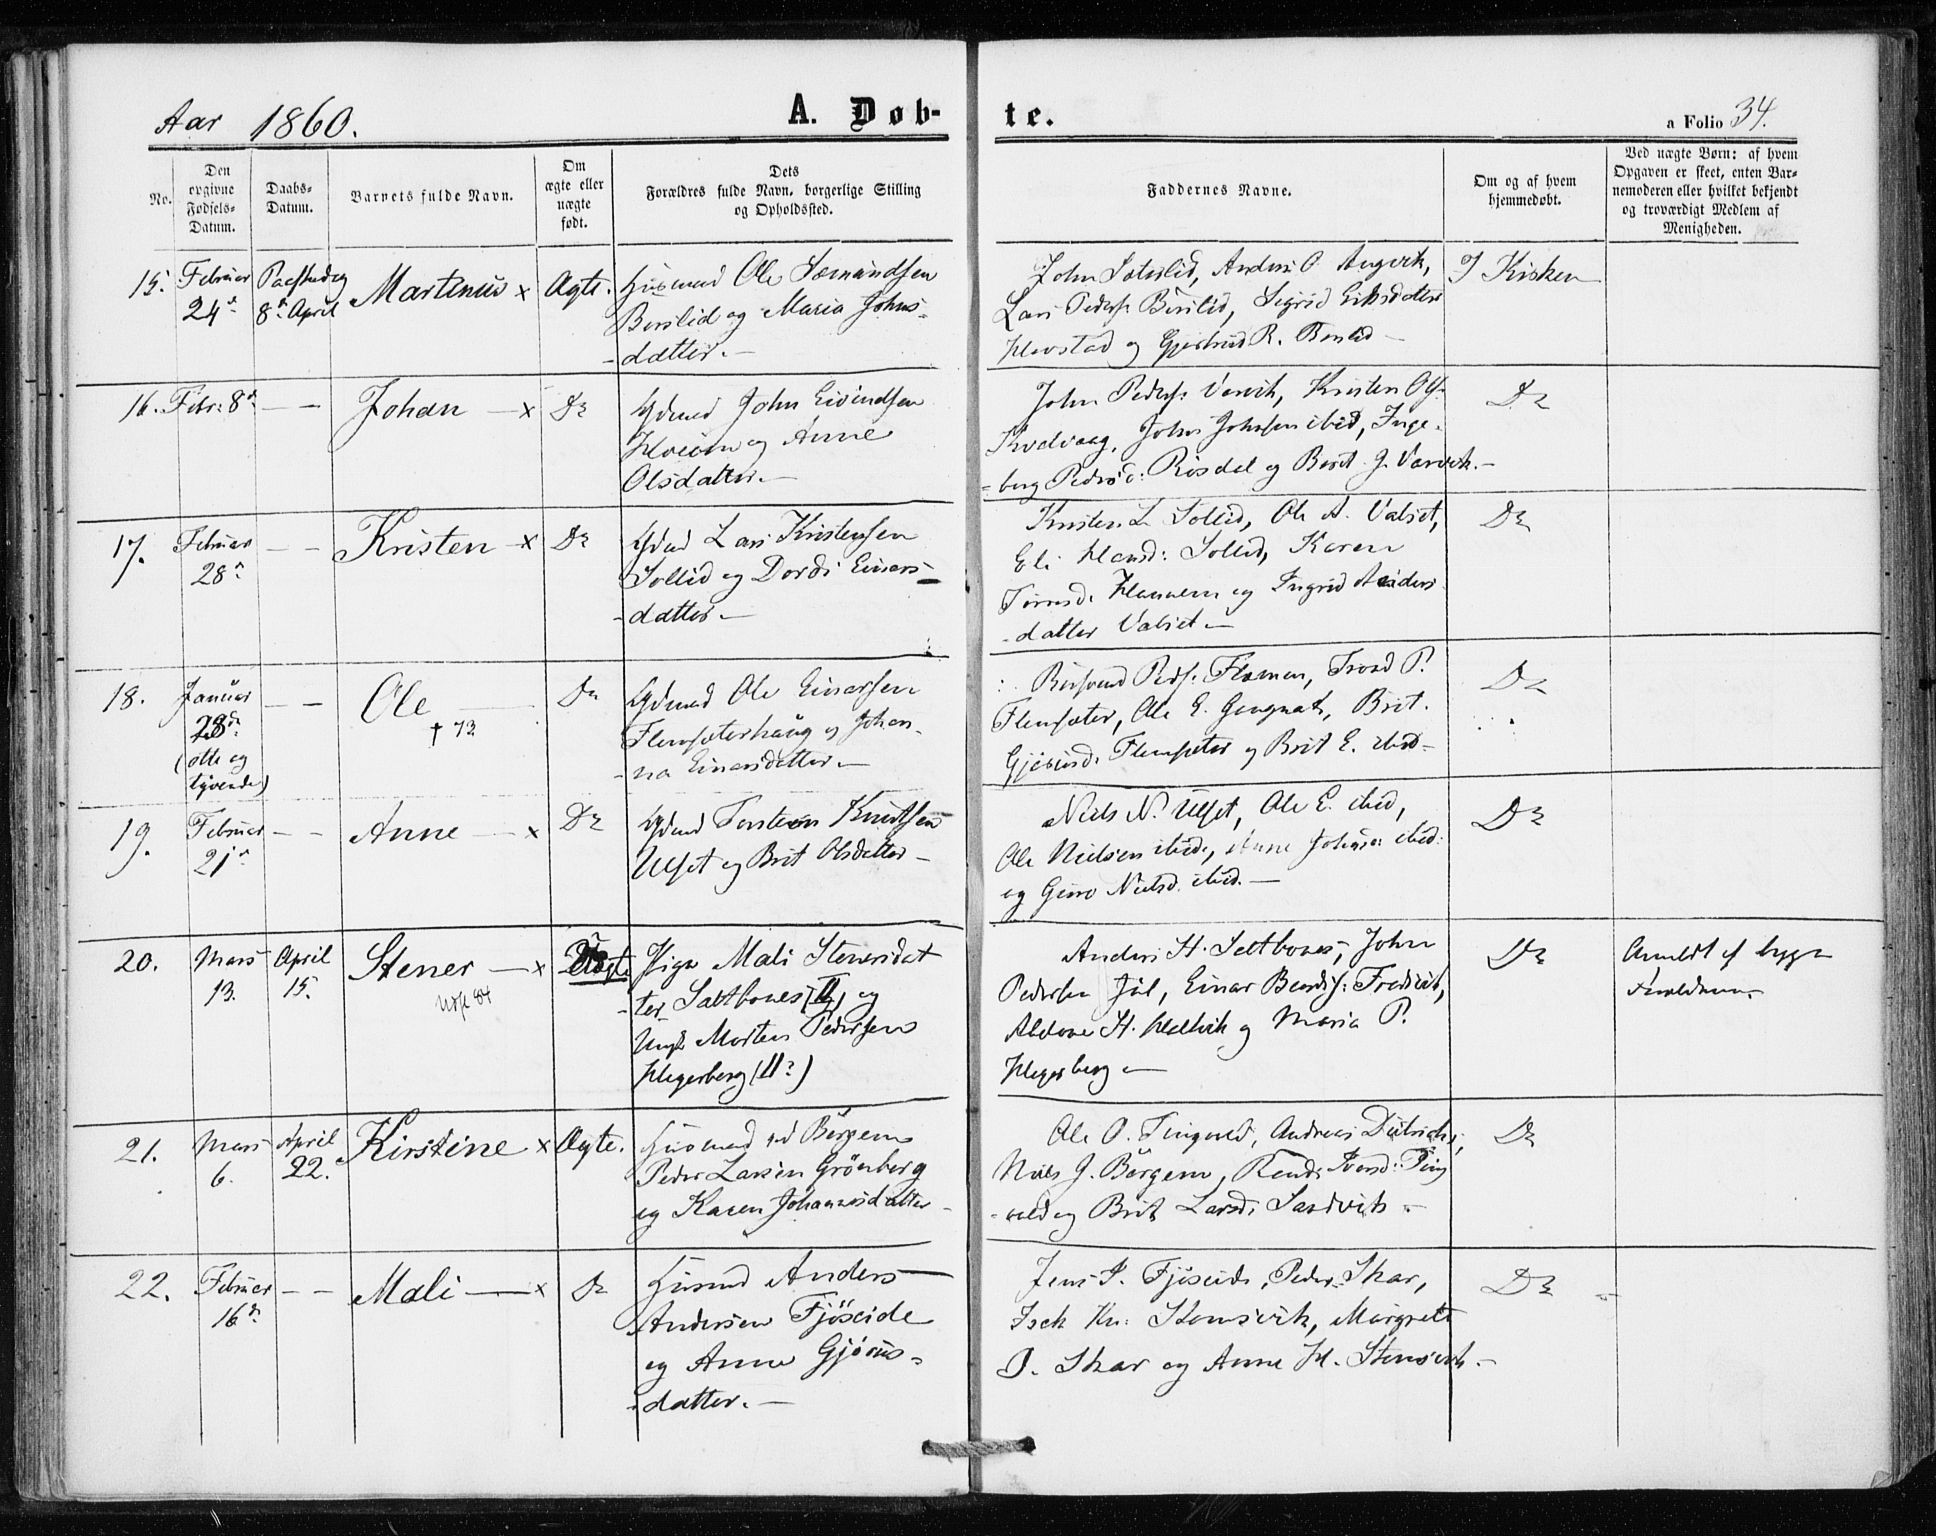 Aar 1860.
A. Døb-
te.
a Folio 34.
No.
Den
opgivne
Fødsels-
Datum.
Daabs-
Datum.
Barnets fulde Navn.
Om
ægte eller
uægte
født.
Dets
Forældres fulde Navn, borgerlige Stilling
og Opholdssted.
Faddernes Navne.
Om og af hvem
hjemmedøbt.
Ved uægte Børn: af hvem
Opgaven er skeet, enten Bar-
nemoderen eller hvilket bekjendt
og troværdigt Medlem af
Menigheden.
15.
Februar
24de
Paaskedag
8de April
Martinus x
Ægte.
Husmand Ole Sæmundsen
Berslid og Maria Johns-
-datter.-
John Sæterlid, Anders O. Angvik,
Lars Peders. Berslid, Sigrid Eriksdatter
og Gjertrud R. Berslid -
I Kirken
16. Febr: 8de - -
Johan - x
Do
Gdmd John Eivindsen
og Anne
Olsdatter.-
John Peders. Varvik, Kristen Ols.
Kvalvaag, John Johnsen ibid, Inge-
-borg Pedersd: Risdal og Berit J. Varvik.-
Do
17.
Februar
28de
- -
Kristen - x
Do
Gdmd Lars Kristensen
Sollid og Dordi Einars-
-datter.-
Kristen L. Sollid, Ole A. Valset,
Eli Hansd: Sollid, Karen
og Ingrid Anders-
-datter Valset -
Do
18.
Januar
28de
(otte og
tyvende)
- -
Ole
† 73
Do
Gdmd Ole Einarsen
Flemsæterhaug og Johan-
-na Einarsdatter.-
Peds. Flemmen, Trond P.
Flemsæter, Ole E. Gengnat, Brit
Flemsæter og Brit E. ibid-
Do
19.
Februar
21de
- -
Anne - x
Do
Gdmd Torsten Knudsen
Ulset og Brit Olsdatter -
Niels N. Ulset, Ole E. ibid,
Ole Nielsen ibid, Anne ibid:
og Guro Nielsd. ibid.-
Do
20.
Mars
13.
April
15.
Stener - x
Uægte
Pige Mali Stenersdat
-ter Saltbones (II) og
Ungk Morten Pedersen
Hegerberg (II?)
Anders H. Saltbones, John
Pedersen Jul, Einar
H. og Maria P.
Hegerberg -
Do
Anmeldt af begge
Forældrene.
21.
Mars
6.
April
22.
Kirstine x
Ægte.
Husmand ved Børgem
Peder Larsen Grönberg
og Karen Johannesdatter -
Ole O. Tingvold, Andreas
Niels J. Börgem, Ting-
-vold og Brit Larsd. Sandvik -
Do
22.
Februar
16de
- -
Mali - x
Do
Husmd Anders
Andersen Fjöseide
og Anne Gjöruds-
-datter.-
Jens P. Fjöseide, Peder Skar,
Isak Kn: Stensvik, Margrete
O. Skar og Anne H. Stensvik.-
Do